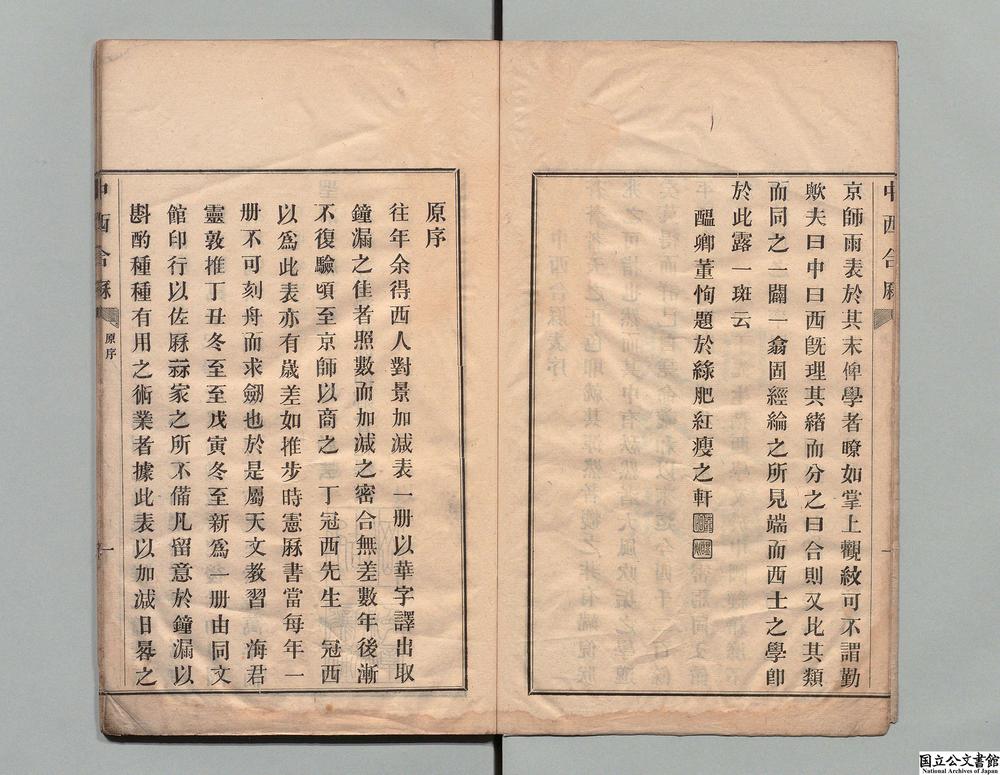 京師兩表於其末俾學者暸如掌上觀紋可不謂勤
歟夫曰中曰西旣理其緖而分之曰合則又比其類
而同之一闢一翕固經綸之所見端而西士之學卽
於此露一斑云
醞卿董恂題於綠肥紅瘦之軒
中西合厤
一
原序
往年余得西人對景加減表一册以華字譯出取
鐘漏之佳者照數而加減之密合無差數年後漸
不復驗頃至京師以商之 丁冠西先生 冠西
以爲此表亦有歲差如推步時憲厤書當每年一
册不可刻舟而求劒也於是屬天文敎習 海君
靈敦推丁丑冬至至戊寅冬至新爲一册由同文
館印行以佐厤家之所不備凡留意於鐘漏以
斟酌種種有用之術業者據此表以加減日晷之
中西合厤
原序
一
国立公文書館
National Archives of Japan